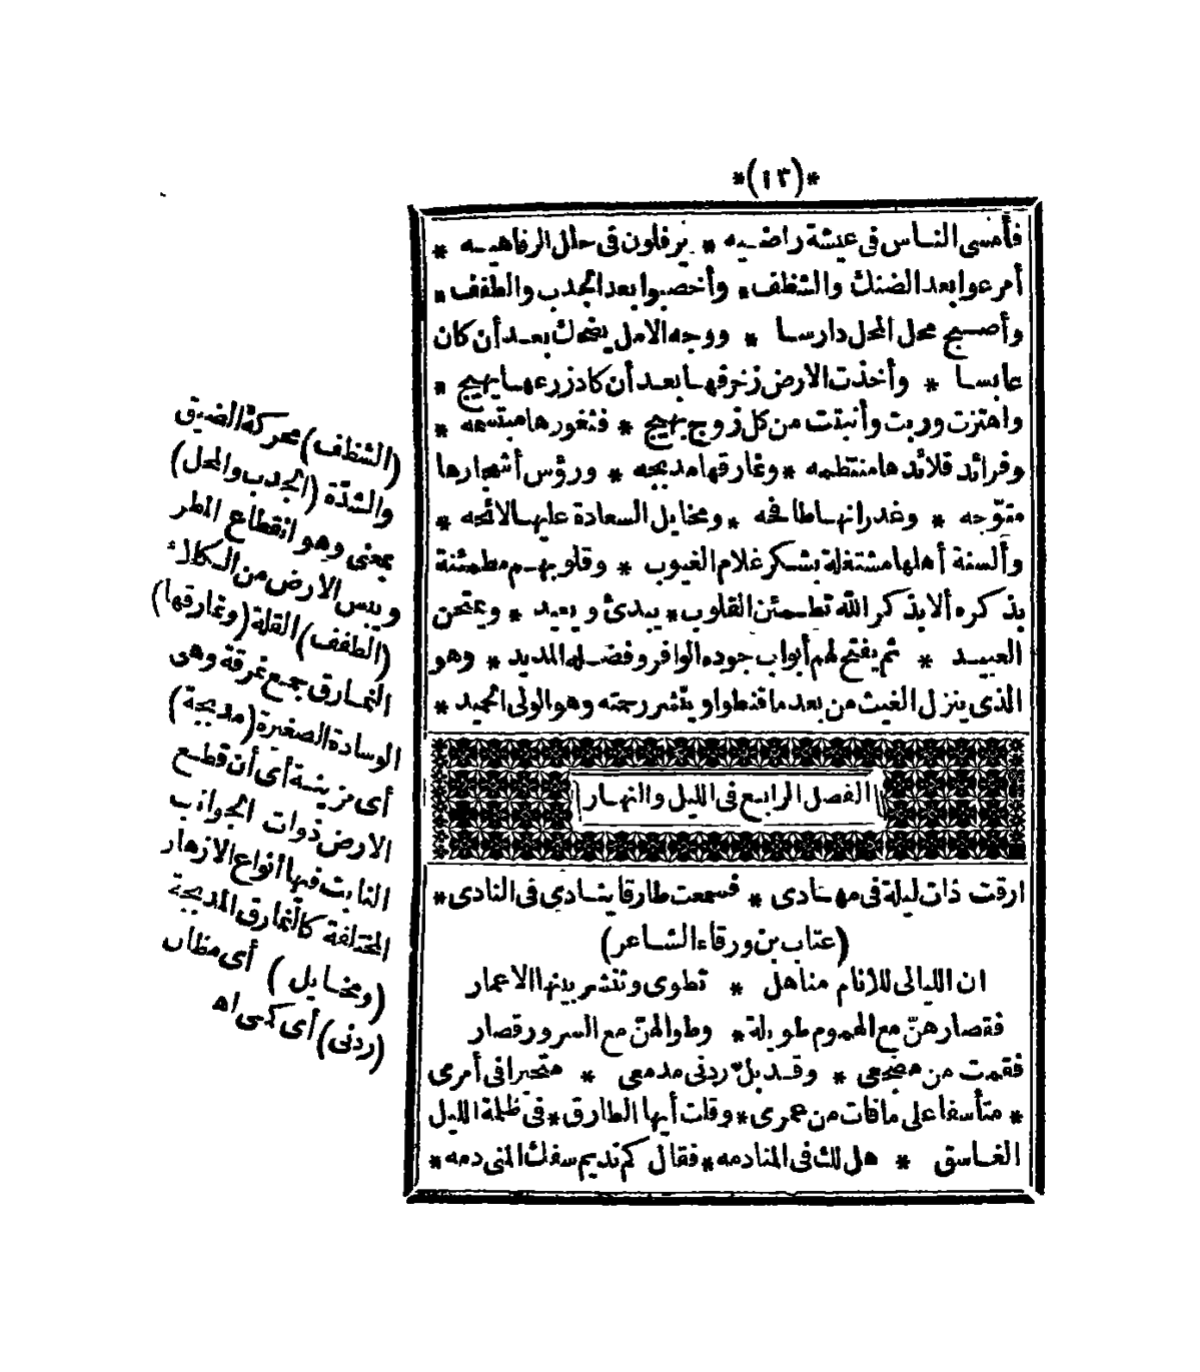 *(١٣)*
فأمسى الناس فى عيشة راضيه * يرفلون فى حلل الرفاهيه *
أمرعوا بعد الضنك والشظف * وأخصبوا بعد الجدب والطفف *
وأصبح محل المحل دارسا * ووجه الامل يضحك بعد أن كان
عابسا * وأخذت الارض زخرفها بعد أن كاد زرعها يهيج *
واهتزت وربت وأنبتت من كل زوج بهيج * فثغورها مبتسمه *
وفرائد قلائدها منتظمه * ونمارقها مدبجه * ورؤس أشجارها
متوّجه * وغدرانها طافحه * ومخايل السعادة عليها لائحه *
وألسنة أهلها مشتغلة بشكر علام الغيوب * وقلوبهم مطمئنة
بذكره ألا بذكر الله تطمئن القلوب * يبدئ ويعيد * ويمتحن
العبيد * ثم يفتح لهم أبواب جوده الوافر وفضله المديد * وهو
الذى ينزل الغيث من بعد ما قنطوا وينشر رحمته وهو الولى الحميد *
الفصل الرابع فى الليل والنهار
ارقت ذات ليلة فى مهادى * فسمعت طارقا ينادى فى النادى *
(عتاب بن ورقاء الشاعر)
ان الليالى للانام مناهل * تطوى وتنشر بينها الاعمار
فقصارهنّ مع الهموم طويلة * وطوالهنّ مع السرور قصار
فقمت من مضجعى * وقد بلّ ردنى مدمعى * متحيرا فى أمرى
* متأسفا على ما فات من عمرى * وقلت أيها الطارق * فى ظلمة الليل
الغاسق * هل لك فى المنادمه * فقال كم نديم سفك المنى دمه *
(الشظف) محركة الضيق
والشدّة (الجدب والمحل)
بمعنى وهو انقطاع المطر
ويبس الارض من الكلاء
(الطفف) القلة (ونمارقها)
النمارق جمع نمرقة وهى
الوسادة الصغيرة (مدبجة)
أى مزينة أى أن قطع
الارض ذوات الجوانب
النابت فيها أنواع الازهار
المختلفة كالنمارق المدبجة
(ومخايل) أى مظان
(ردنى) أى كمى اه